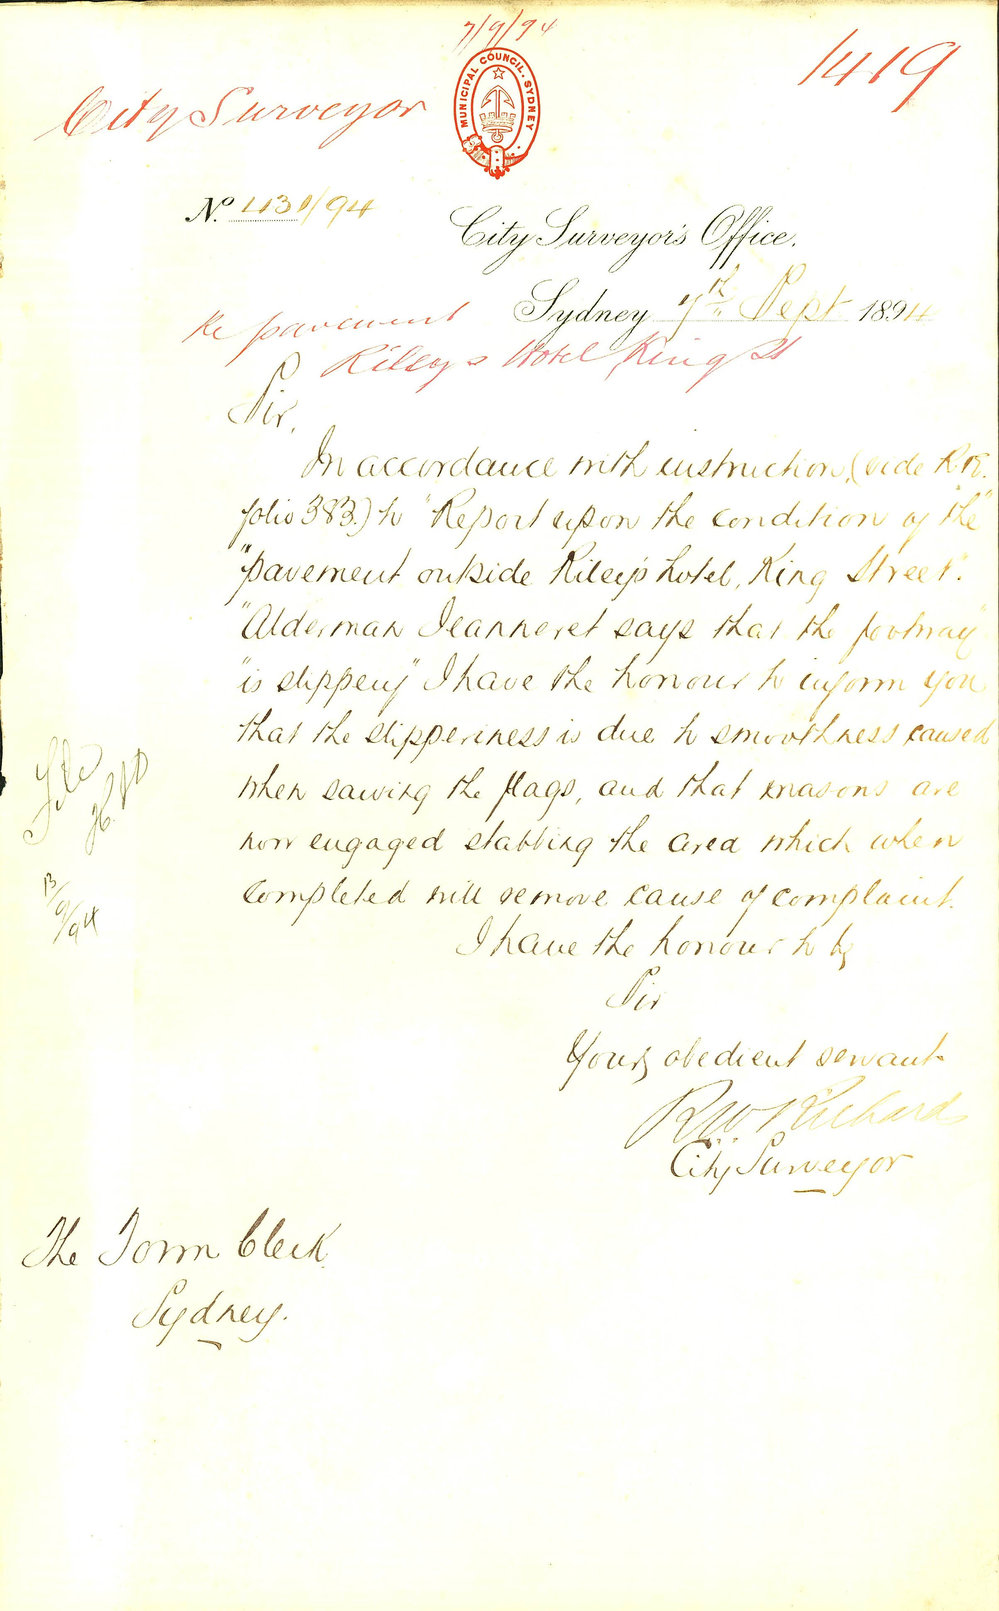 7/9/94
1419
City Surveyor
MUNICIPAL COUNCIL. SYDNEY
No. 1131/94
City Surveyor's Office.
Sydney 7th Sept 1894
Re pavement
Rileys Hotel King St
Sir,
In accordance with instruction, (vide R.R.
folio 383.) to "Report upon the condition of "the"
"pavement outside Riley's hotel, King Street".
"Alderman Jeanneret says that the footway"
"is slippery" I have the honour to inform you
that the slipperiness is due to smoothness caused
when sawing the flags, and that masons are
now engaged stabbing the area which when
completed will remove cause of complaint.
I have the honour to be
Sir
Your obedient servant
R W Richards
City Surveyor
The Town Clerk
Sydney.
13/9/94